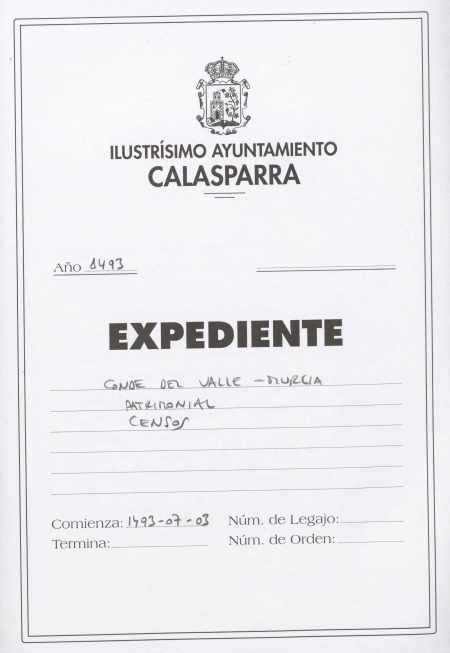 ILUSTRÍSIMO AYUNTAMIENTO
CALASPARRA
Año 1493
EXPEDIENTE
CONDE DEL VALLE - MURCIA
PATRIMONIAL
CENSOS
Comienza: 1493-07-03 Núm. de Legajo:
Termina: Núm. de Orden: